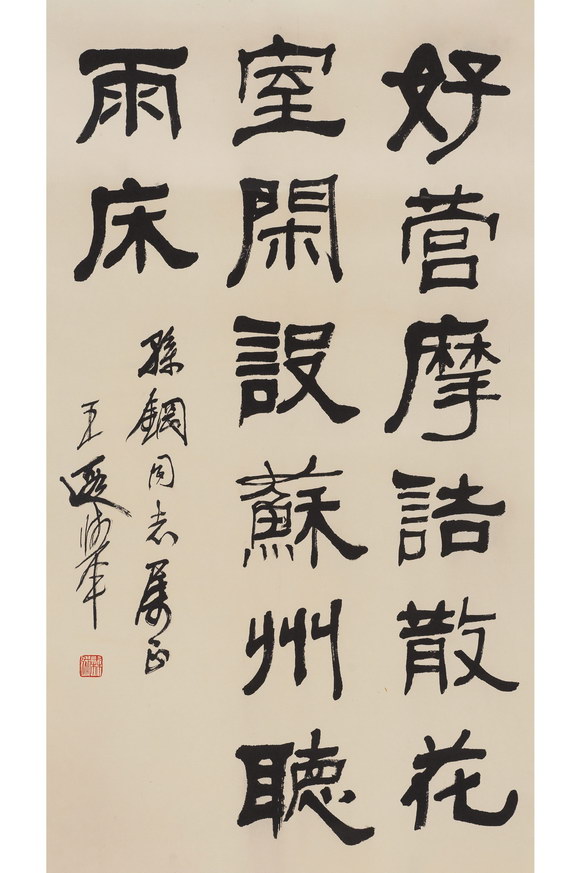 好营摩詰散花
室閑設蘇州聽
雨床
孫鋼同志屬正
王遐舉